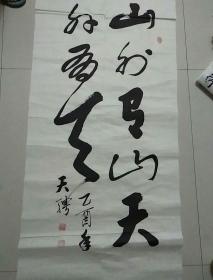 山外有山天
外有天
乙酉年
天骋